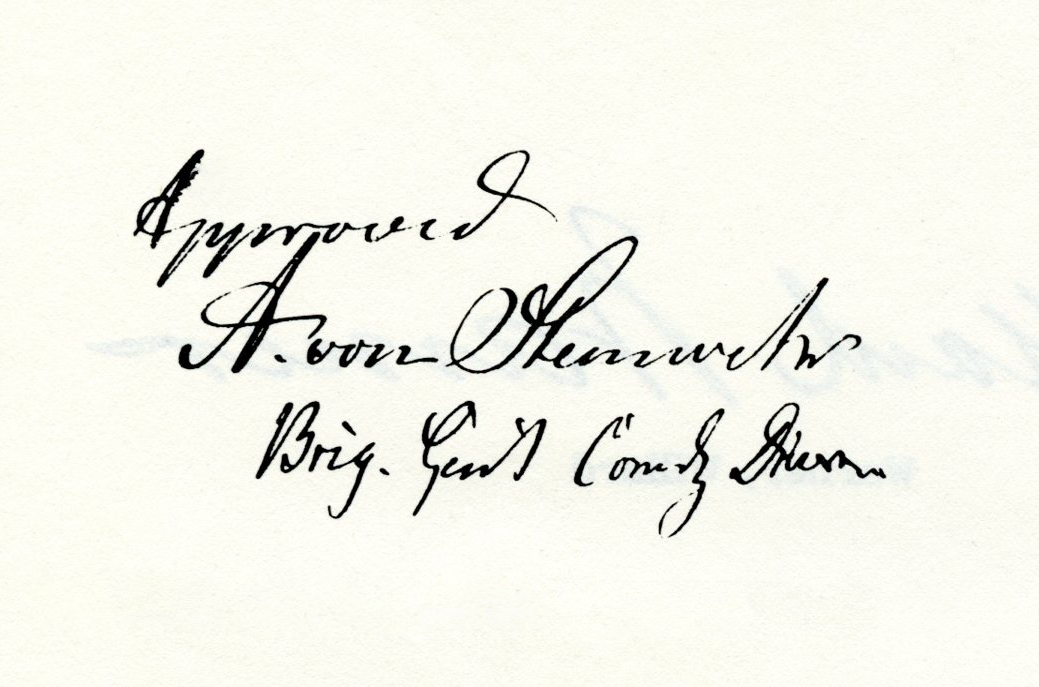 Approved
A. von Steinwehr
Brig. Genl Comdg Division